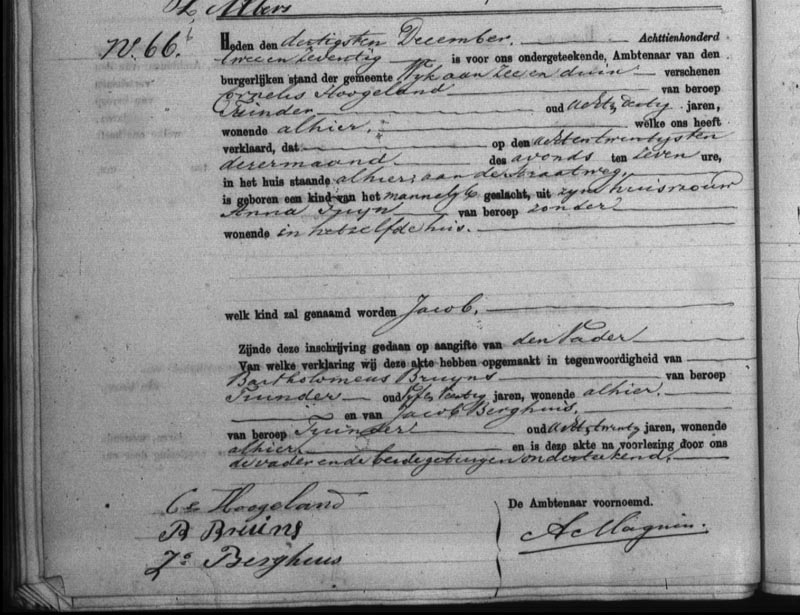 Albers
No. 66.
Heden den dertigsten December. Achttienhonderd
twee en zeventig is voor ons ondergeteekende, Ambtenaar van den
burgerlijken stand der gemeente Wijk aan Zee en Duin verschenen
Cornelis Hoogeland van beroep
Tuinder oud acht & dertig jaren,
wonende alhier. welke ons heeft
verklaard, dat op den acht en twintigsten
dezer maand des avonds ten zeven ure,
in het huis staande alhier aan de straatweg,
is geboren een kind van het mannelijk geslacht, uit zijne huisvrouw
Anna Tuijn van beroep zonder
wonende in hetzelfde huis.
welk kind zal genaamd worden Jacob.
Zijnde deze inschrijving gedaan op aangifte van den Vader
Van welke verklaring wij deze akte hebben opgemaakt in tegenwoordigheid van
Bartholomeus Bruyns van beroep
Tuinder oud vijf & veertig jaren, wonende alhier.
en van Jacob Berghuis.
van beroep Tuinder oud acht & twintig jaren, wonende
alhier en is deze akte na voorlezing door ons
de vader en de beide getuigen onderteekend.
Cs Hoogeland
B Bruins
Jb Berghuis
De Ambtenaar voornoemd.